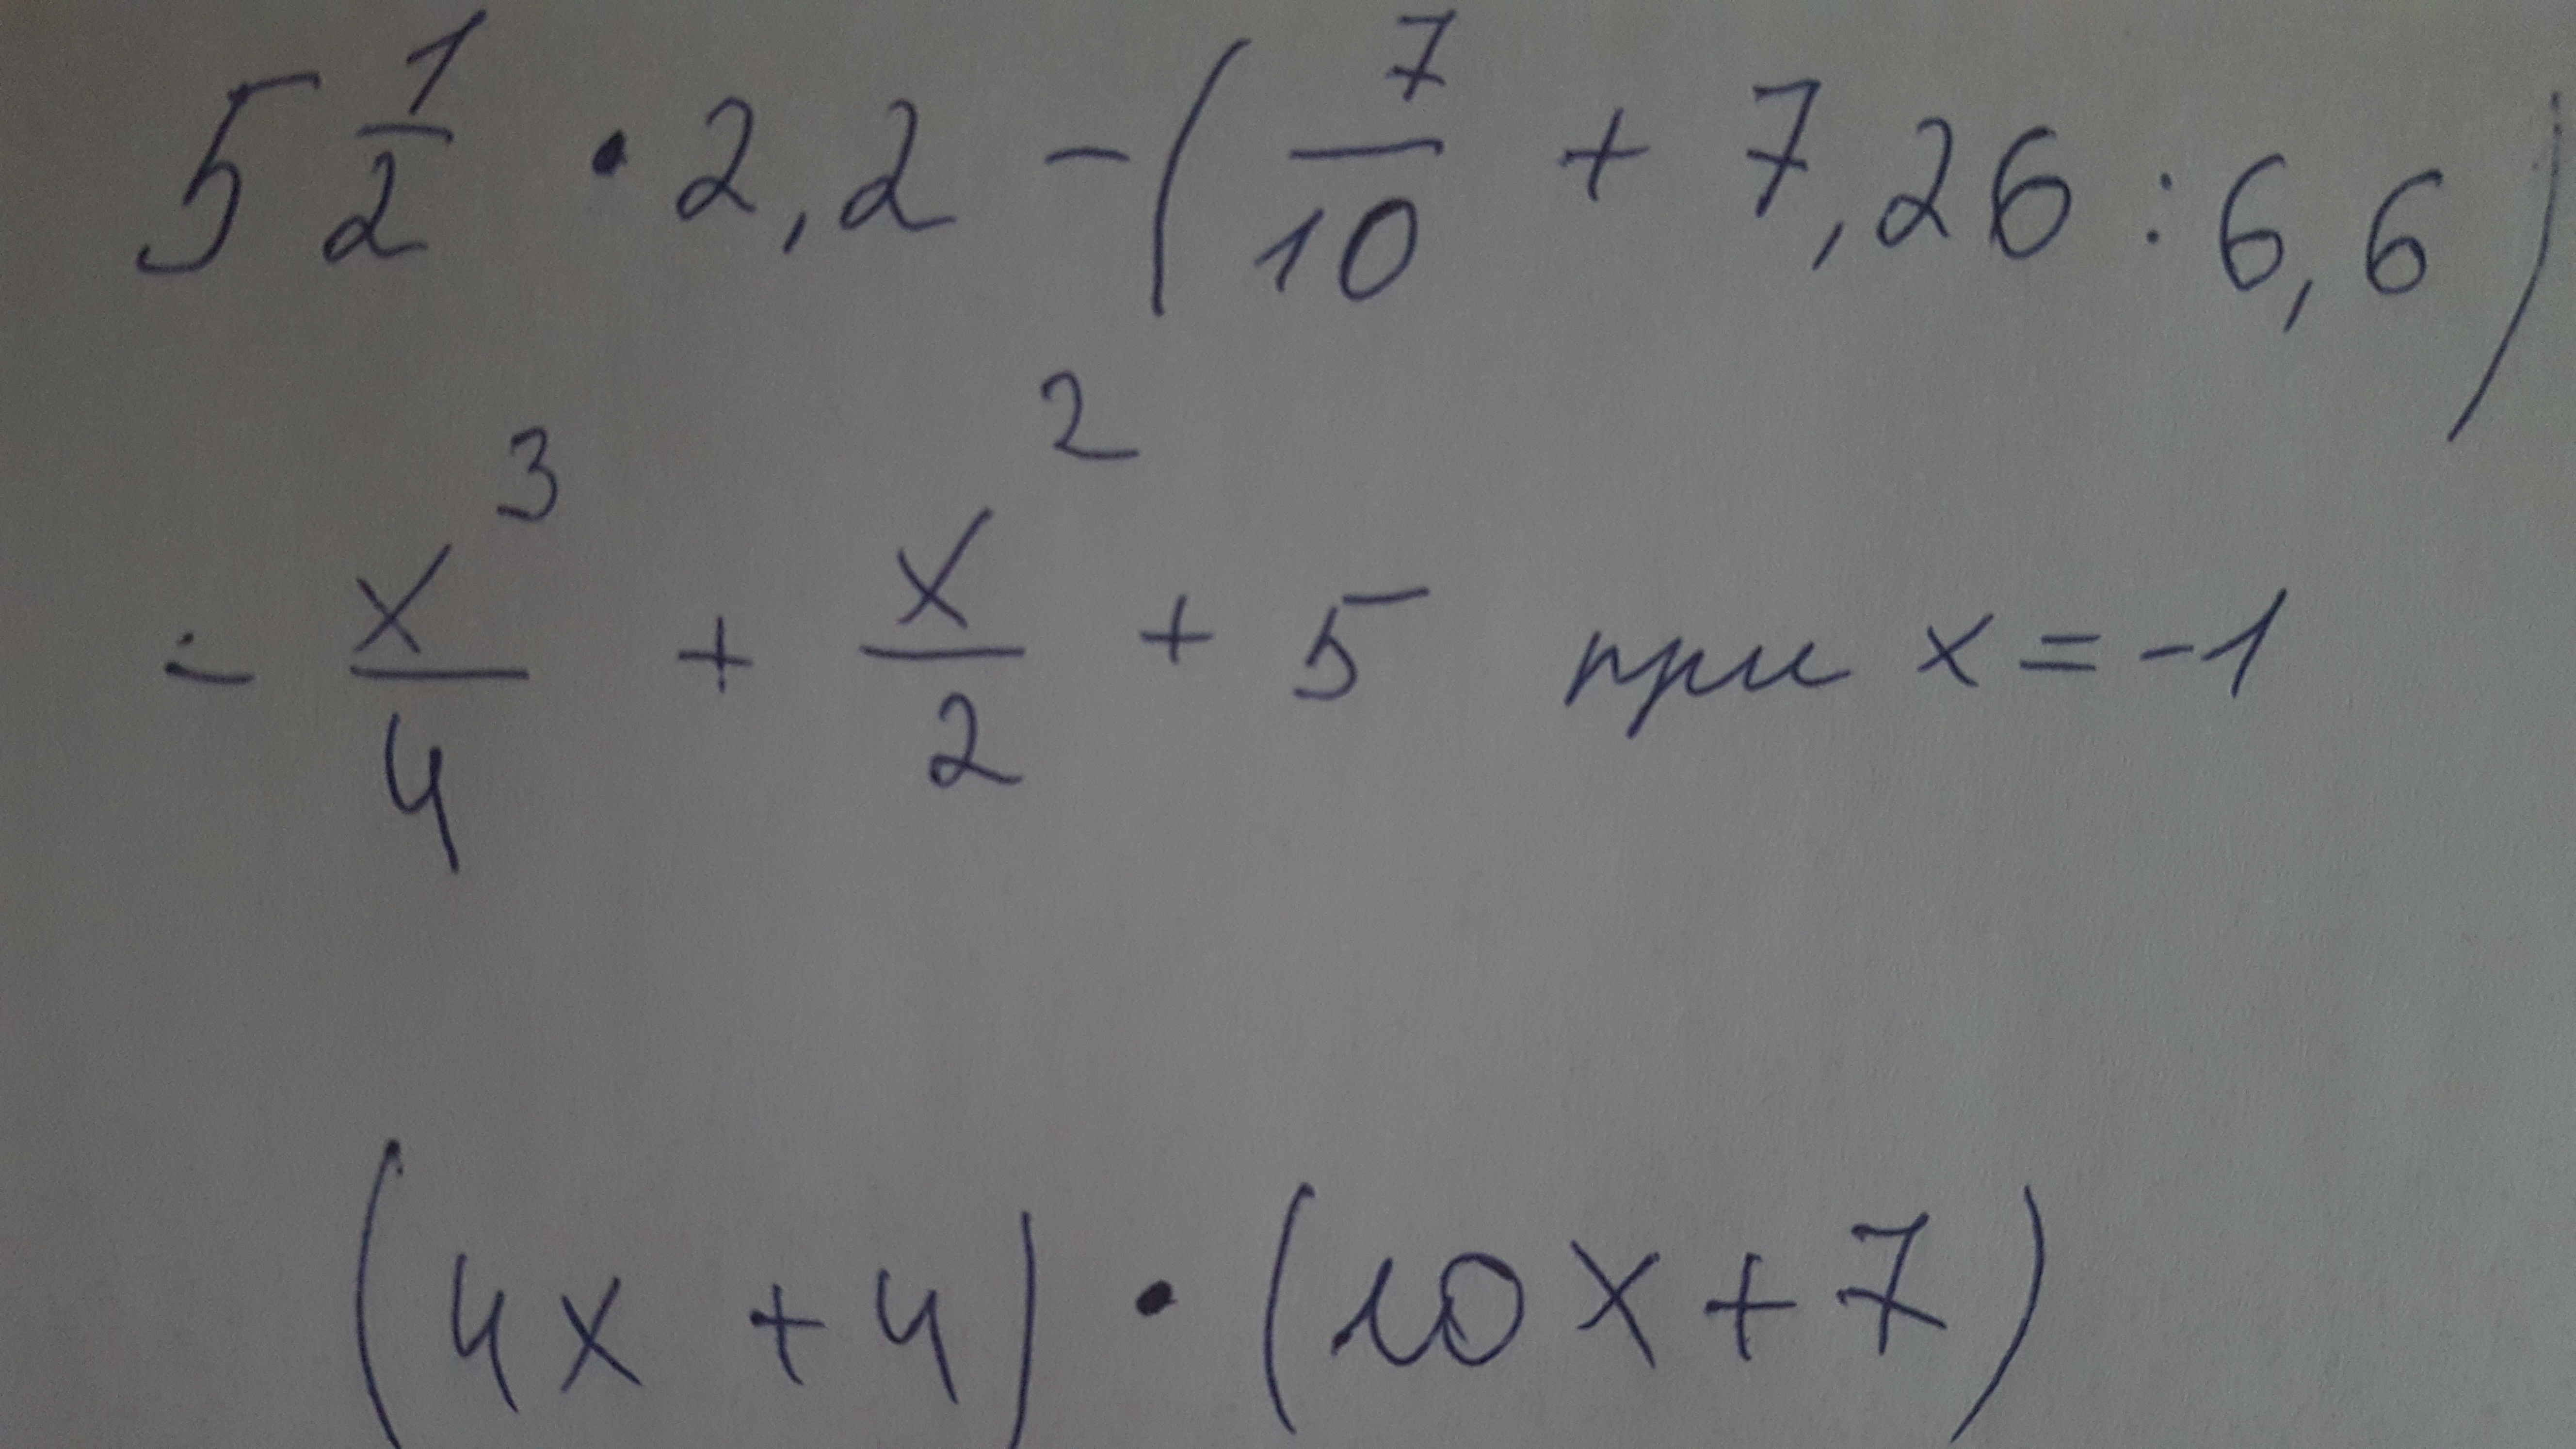 5 1/2 · 2,2 - (7/10 + 7,26 : 6,6)
- x³/4 + x²/2 + 5 при x = -1
(4x + 4) · (10x + 7)